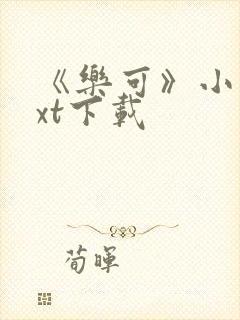 《樂可》小
xt下載
荀暉